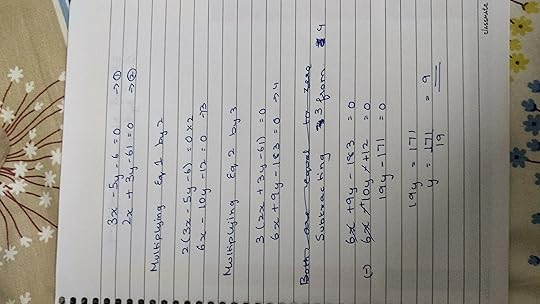 3x - 5y - 6 = 0 → ①
2x + 3y - 61 = 0 → ②
Multiplying Eq. 1 by 2
2(3x - 5y - 6) = 0 × 2
6x - 10y - 12 = 0 → 3
Multiplying Eq 2 by 3
3(2x + 3y - 61) = 0
6x + 9y - 183 = 0 → 4
Both are equal to zero
Subtracting 3 from 4
6x + 9y - 183 = 0
(-) 6x - 10y - + 12 = 0
19y - 171 = 0
19y = 171
y = 171 = 9
19
classmate